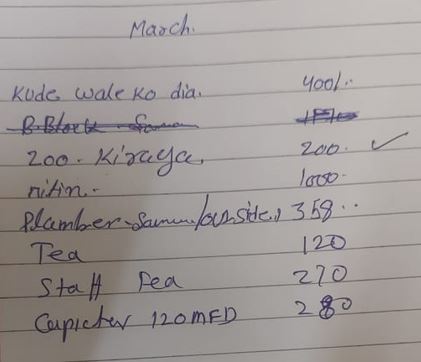 March.
Kude wale ko dia. 400/..
B.Block
200. Kiraya. 200. ✓
nitin. 1000.
Plamber Samun/outside, 358..
Tea 120
Staff Pea 270
Capicter 120MFD 280